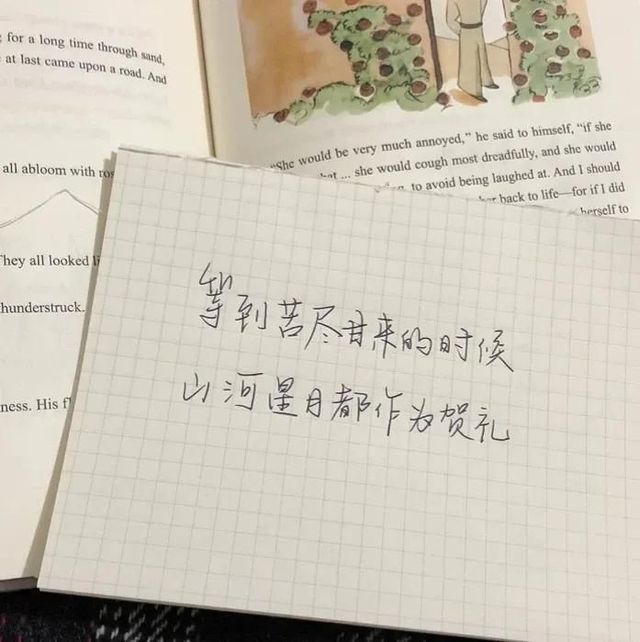 for a long time through sand,
at last came upon a road. And
all abloom with
They all looked
hunderstruck.
ness. His
"She would be very much annoyed," he said to himself, "if she
... she would cough most dreadfully, and she would
to avoid being laughed at. And I should
back to life—for if I did
herself to
等到苦尽甘来的时候
山河星月都作为贺礼